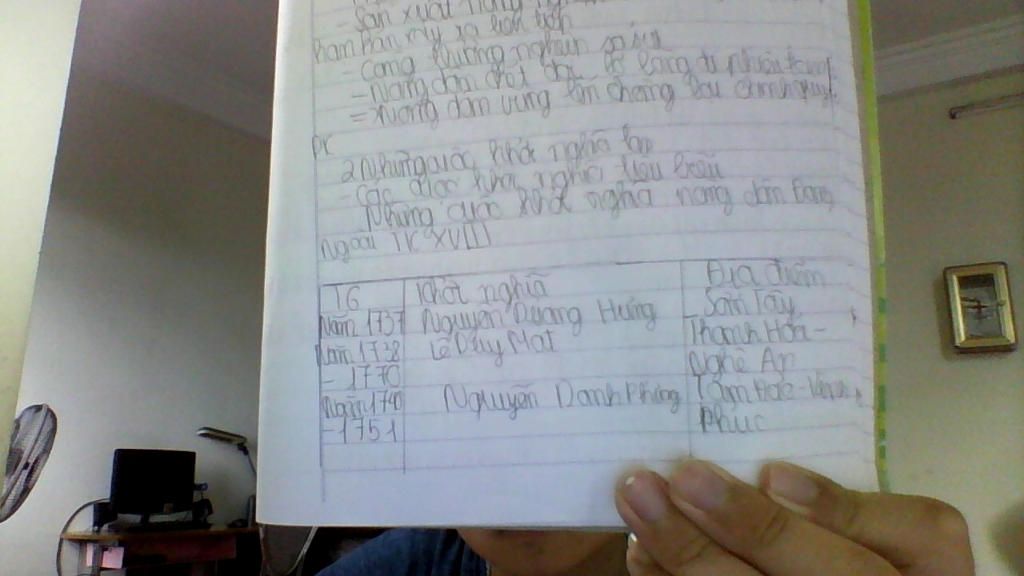 - Sản xuất nông
- Công thương nghiệp sa sút
- Nông dân chết đói, bỏ làng đi phiêu tán
2 Những cuộc khởi nghĩa lớn
- Các cuộc khởi nghĩa tiêu biểu
Những cuộc khởi nghĩa nông dân Đàng
Ngoài TK XVIII
TG Khởi nghĩa Địa điểm
Năm 1737 Nguyễn Dương Hưng Sơn Tây
Năm 1738 Lê Duy Mật Thanh Hóa -
- 1770 Nghệ An
Năm 1740 Nguyễn Danh Phương Tam Đảo - Vĩnh
- 1751 Phúc